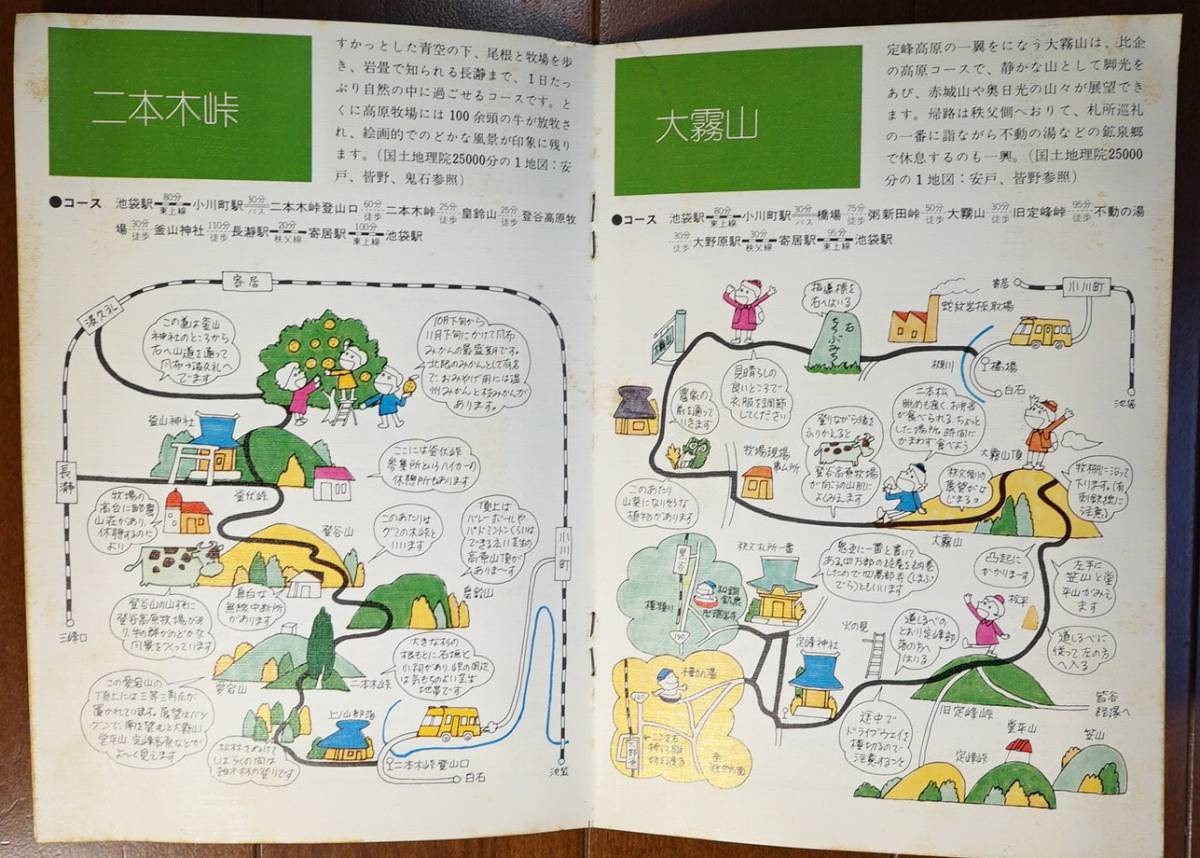 二本木峠
すかっとした青空の下、尾根と牧場を歩
き、岩畳で知られる長瀞まで、1日たっ
ぷり自然の中に過ごせるコースです。と
くに高原牧場には100余頭の牛が放牧さ
れ、絵画的でのどかな風景が印象に残り
ます。(国土地理院25000分の1地図:安
戸、皆野、鬼石参照)
●コース 池袋駅 80分 東上線 小川町駅 30分 バス 二本木峠登山口 60分 徒歩 二本木峠 25分 徒歩 皇鈴山 25分 徒歩 登谷高原牧
場 30分 徒歩 釜山神社 110分 徒歩 長瀞駅 20分 秩父線 寄居駅 100分 東上線 池袋駅
寄居
波久礼
この道は釜山
神社のところから
右へ山道を通って
風布・波久礼へ
でます
10月下旬から
11月下旬にかけて風布
みかんの最盛期です。
北限のみかんとして有名
で、おみやげ用には温
州みかんと桂みかんが
あります。
釜山神社
長瀞
釜伏峠
ここには釜伏峠
というハイカーの
休憩所もあります
牧場の
高台には
山荘があり、
休憩するのに
よい
登谷山
このあたりは
グミの木峠と
いいます
頂上は
バレーボールや
バドミントンくらいは
できる広い芝生の
高原山頂が
ありま〜す
小川町
皇鈴山
登谷山の山すそに
登谷高原牧場があ
り、牛の群がのどかな
風景をつくっています
真白な
無線中断所
があります
三峰口
大きな杉の
根もとに石垣と
小祠があり、峠の周辺
は気もちのよい芝生
地帯です
二本木峠
愛宕山
この愛宕山の
頂上には三等三角点が
置かれています。展望はバツ
グンで、南は笠山と大霧山、
堂平山、定峰高原などが
よ〜く見えます
上ノ山部落
しばらくの間は
雑木林の登りです
二本木峠登山口
白石
池袋
大霧山
定峰高原の一翼をになう大霧山は、比企
の高原コースで、静かな山として脚光を
あび、赤城山や奥日光の山々が展望でき
ます。帰路は秩父側へおりて、札所巡礼
の一番に詣ながら不動の湯などの鉱泉郷
で休息するのも一興。(国土地理院25000
分の1地図:安戸、皆野参照)
●コース 池袋駅 80分 東上線 小川町駅 30分 バス 橋場 75分 徒歩 粥新田峠 50分 徒歩 大霧山 30分 徒歩 旧定峰峠 95分 徒歩 不動の湯
30分 徒歩 大野原駅 30分 秩父線 寄居駅 95分 東上線 池袋駅
寄居
小川町
指導標を
右へはいる
蛇紋岩採取場
石
ちゝぶみち
大霧山
槻川
橋場
白石
池袋
見晴らしの
良いところで
衣服を調節
してください
農家の
前を通って
いきます
二本松
眺めも良く、お弁当
が食べられる、ちょっと
した場所。時間に
かまわず食べよう
登りながら後を
ふりかえると
登谷高原牧場
が向こうの山肌に
よくみえます
牧場現場
事ム所
大霧山頂
秩父側の
展望がは
じまるョ
牧柵に沿って
下ります。(有
刺鉄線に
注意)
このあたり
山菜になりそうな
植物があります
大霧山
凸起に
かかりま〜す
左手に
笠山と堂
平山がみて
ます
黒谷
和銅
鉱泉
横瀬川
140
秩父札所一番
四萬部寺(しまぶ
でら)ともいいます
松平
道しるべに
従って左の方
へ入る
道しるべの
とおり定峰部
落の方へ
はいる
火の見
定峰神社
不動の湯
140
大野原
途中で
ドライブウェイを
横切るので
注意すること
旧定峰峠
皆谷
経塚へ
定峰峠
堂平山
笠山